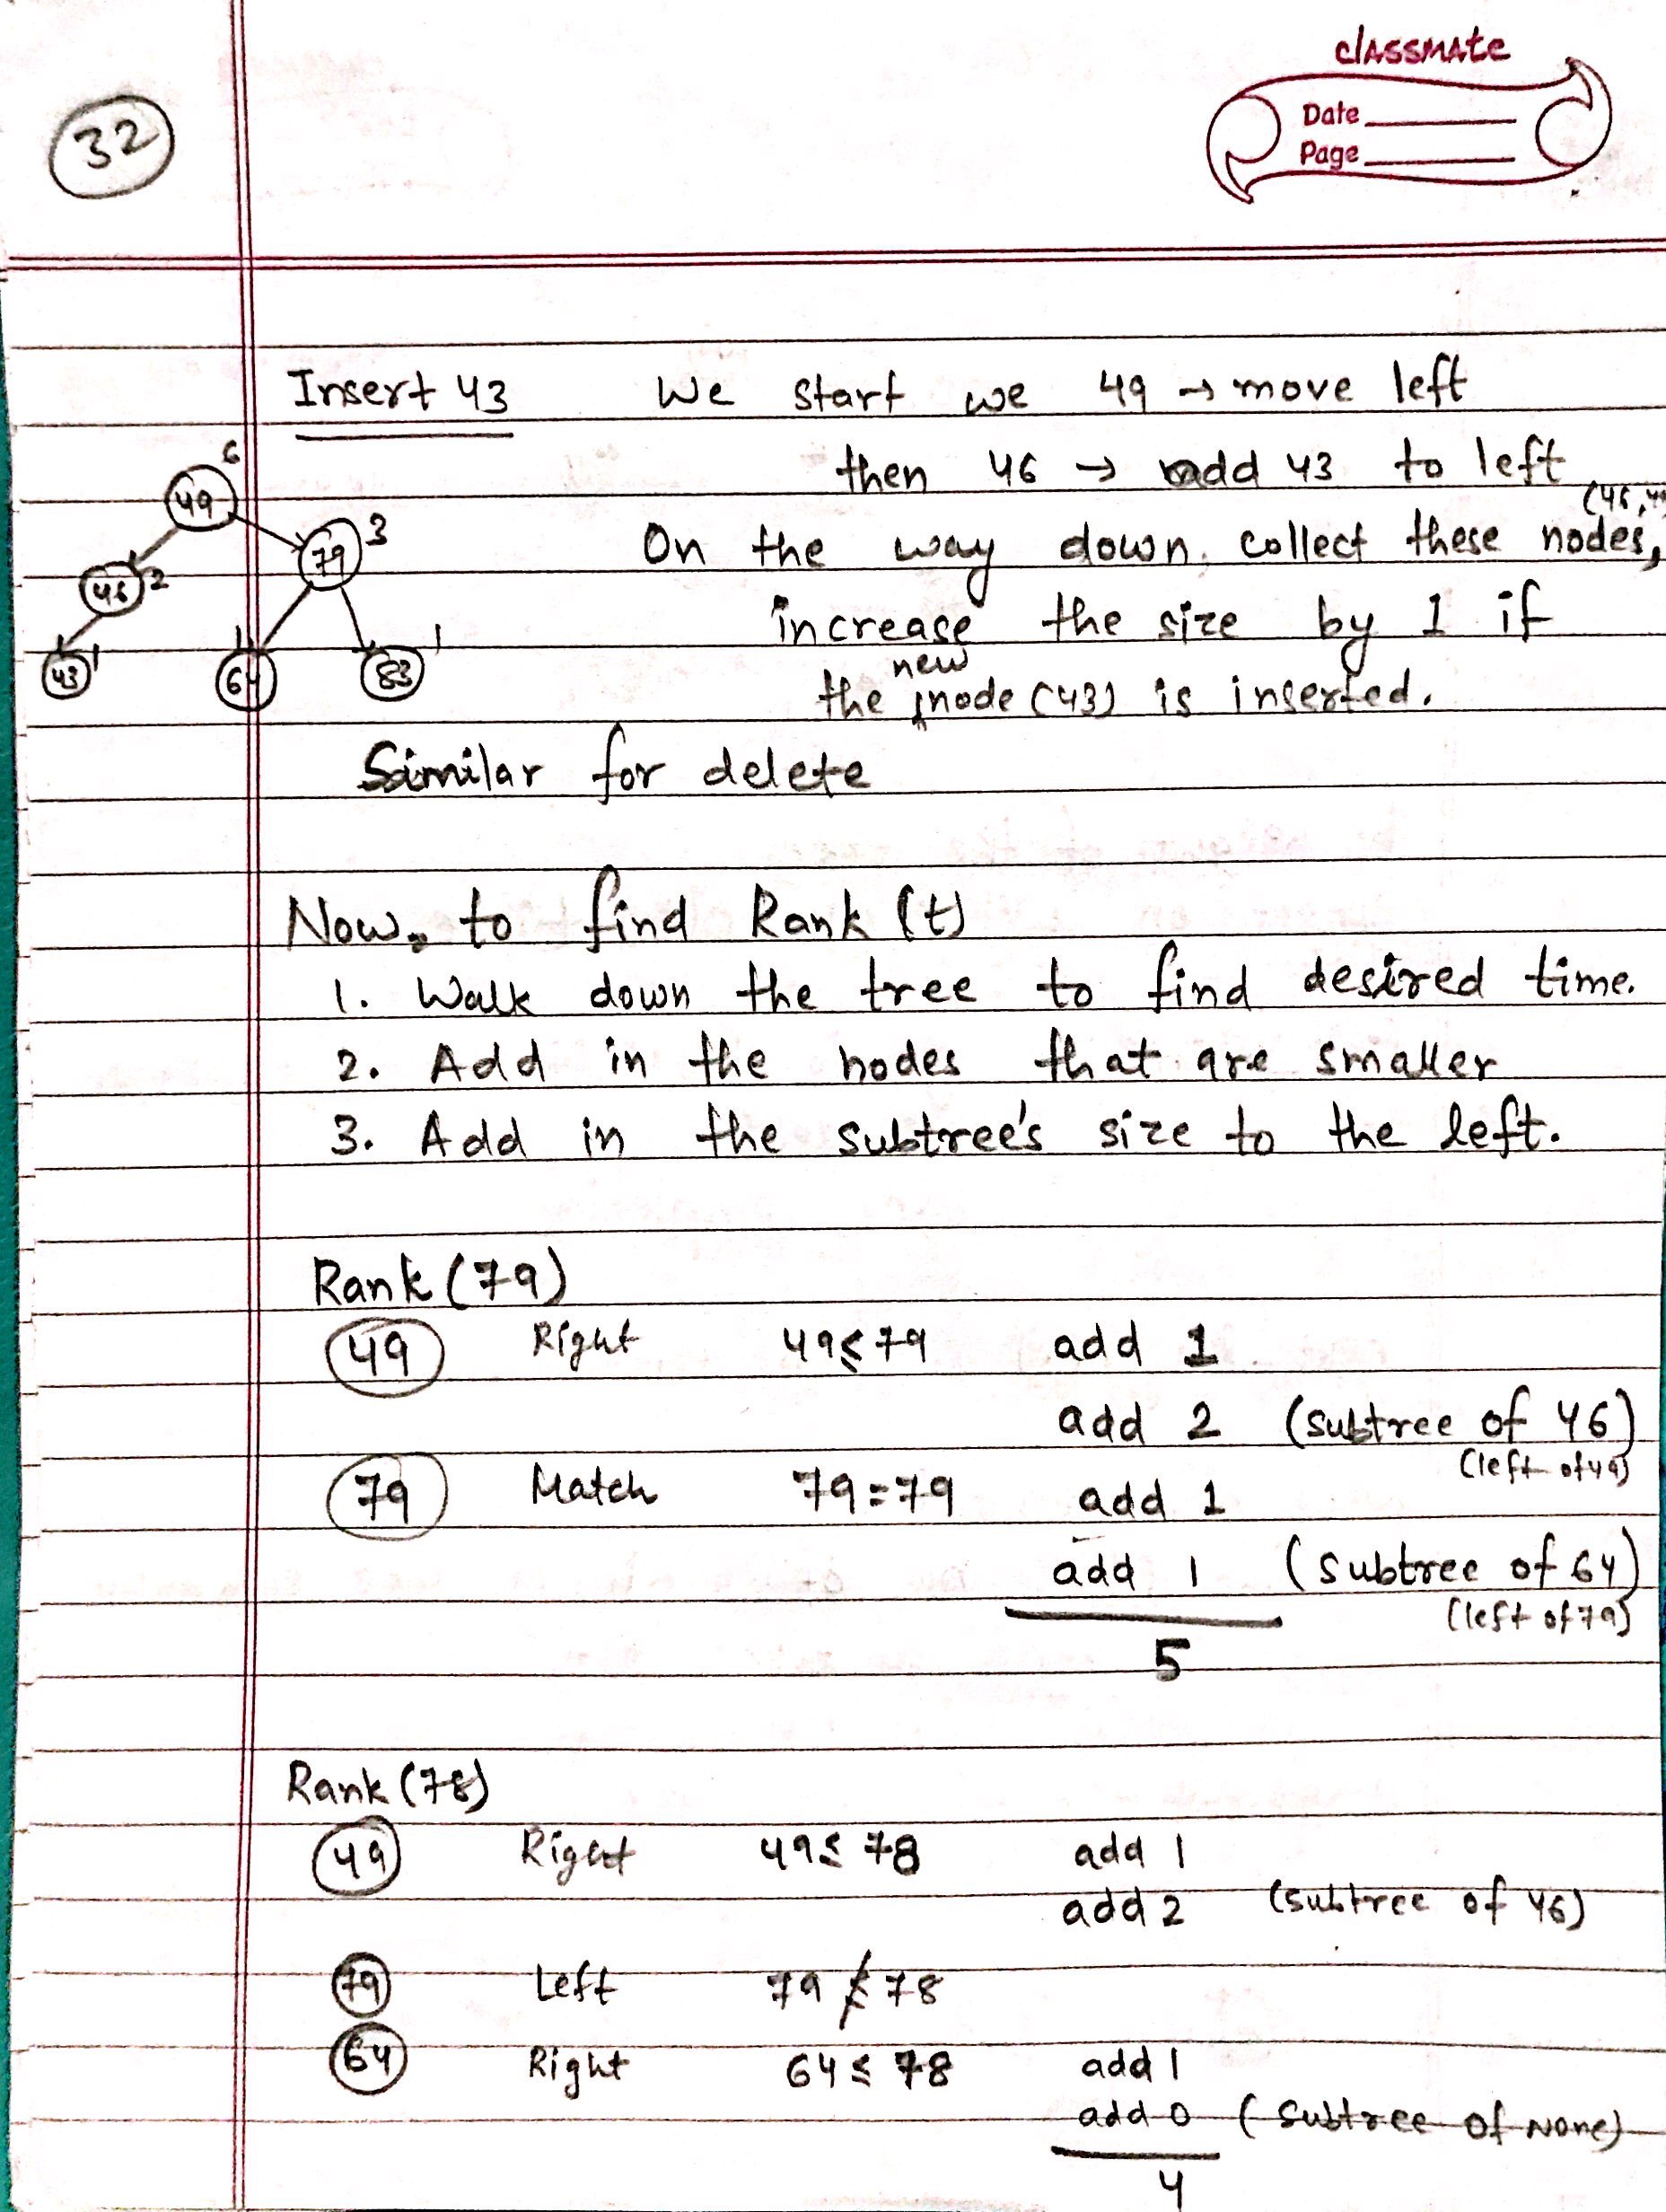 classmate
Date
Page
32
Insert 43 We start we 49 → move left
then 46 → add 43 to left
(46,49
On the way down, collect these nodes,
increase the size by 1 if
new
the node (43) is inserted.
6
49
79 3
46 2
43 1
64 1
83 1
Similar for delete
Now, to find Rank (t)
1. Walk down the tree to find desired time.
2. Add in the nodes that are smaller
3. Add in the subtree's size to the left.
Rank (79)
49 Right 49 ≤ 79 add 1
add 2 (subtree of 46)
(left of 49)
79 Match 79 = 79 add 1
add 1 (subtree of 64)
(left of 79)
5
Rank (78)
49 Right 49 ≤ 78 add 1
add 2 (subtree of 46)
79 Left 79 ≰ 78
64 Right 64 ≤ 78 add 1
add 0 (subtree of None)
4